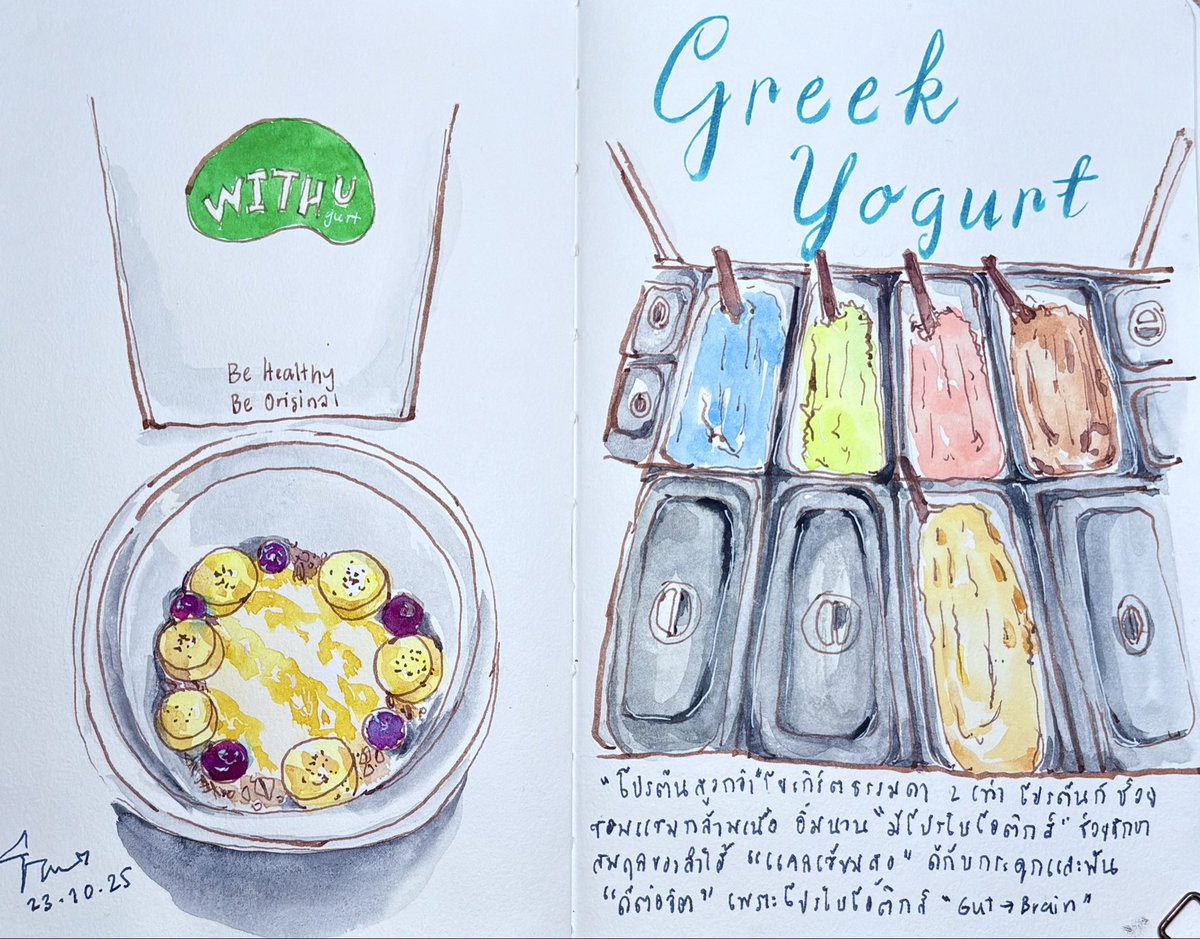 WITHU
gurt
Be Healthy
Be Original
23.10.25
Greek
Yogurt
"โปรตีนสูงกว่า"โยเกิร์ตธรรมดา 2 เท่า โปรตีนก็ช่วย
ซ่อมแซมกล้ามเนื้อ อิ่มนาน "มีโปรไบโอติกส์" ช่วยรักษา
สมดุลของลำไส้ "แคลเซียมสูง" ดีกับกระดูกและฟัน
"ดีต่อจิต" เพราะโปรไบโอติกส์ "Gut→Brain"